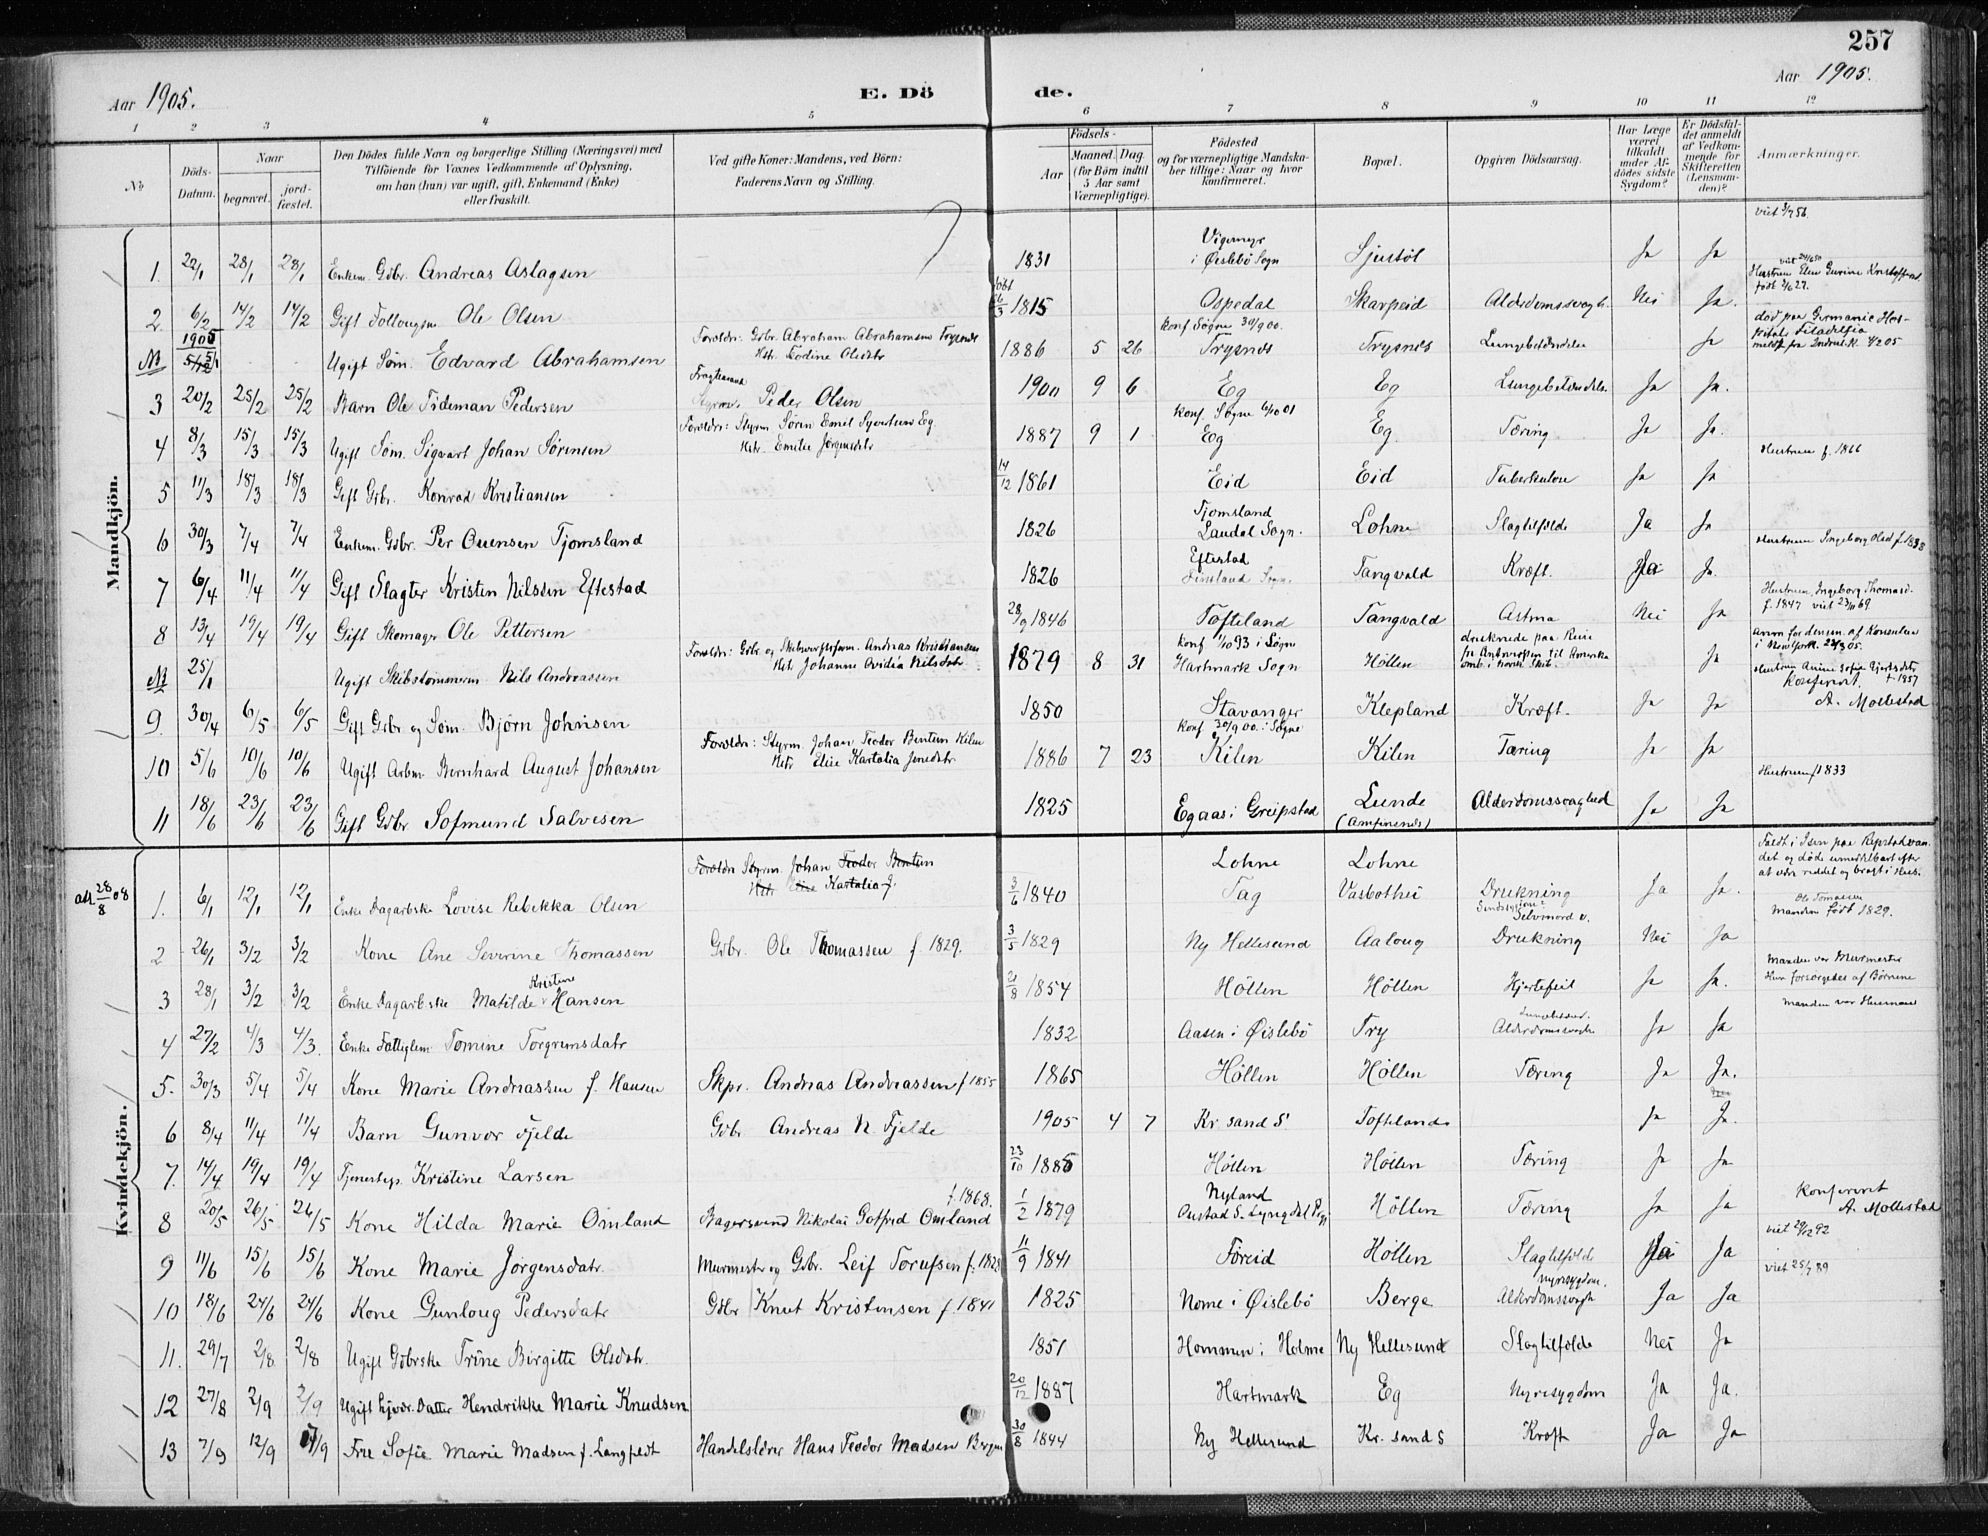 257
Aar 1905.
E. Dö de.
Aar 1905.
1 2 3 4 5 6 7 8 9 10 11 12
No
Döds-Datum.
Naar
begravet.
jordfæstet.
Den Dödes fulde Navn og borgerlige Stilling (Næringsvei) med
Tilföiende for Voxnes Vedkommende af Oplysning,
om han (hun) var ugift, gift, Enkemand (Enke)
eller fraskilt.
Ved gifte Koner: Mandens, ved Börn:
Faderens Navn og Stilling.
Födsels-
Aar
Maaned. Dag.
(for Börn indtil
5 Aar samt
Værnepligtige).
Födested
og for værnepligtige Mandskaber tillige: Naar og hvor
konfirmeret.
Bopæl.
Opgiven Dödsaarsag.
Har Læge været tilkaldt under Afdödes sidste Sygdom?
Er Dödsfaldet anmeldt af Vedkommende for Skifteretten (Lensmanden)?
Anmærkninger.
Mandkjön.
1. 22/1 28/1 28/1 Enkem. Gdbr. Andreas Aslagsen 1831 Vigemyr i Øislebö Sogn Ljustöl Ja Ja
2 6/2 14/2 14/2 Gift Ole Olsen 1815 Ospedal Skarpeid Alderdomssvagh. Nei Ja.
1905 5/1 Ugift Söm. Edvard Abrahamsen Foreldr: Gdbr. Abraham Abrahamsen Trysnes 1886 5 26 konf Søgne 30/9 00. Trysnes Trysnes Lungebetændelse Ja
død paa Germanic Hospital, Filadelfia
3 20/2 25/2 25/2 Barn Ole Tideman Pedersen Peder Olsen 1900 9 6 Eg Eg Lungebetændelse Ja Ja.
4 8/3 15/3 15/3 Ugift Söm. Sigvart Johan Sörensen Foreldr: Styrm Sören Emil Syvertsen Eg. Hstr. Emilie Jörgensdtr 1887 9 1 konf Søgne 6/10 01 Eg Eg. Tæring Ja Ja.
5 11/3 18/3 18/3 Gift Gdbr. Konrad Kristiansen 14/12 1861 Eid Eid Tuberkulose Ja Ja Hustruen f. 1866
6 30/3 7/4 7/4 Enkem. Gdbr. Per Ouensen Tjomsland 1826 Tjomsland Laudal Sogn. Lohne Slagtilfælde Ja Ja
7 6/4 11/4 11/4 Gift Slagter Kristen Nilssen Eftestad 1826 Eftestad Finsland Sogn. Tangvald Kræft. Ja Ja. Hustruen Ingeborg Olsd f. 1838
8 13/4 19/4 19/4 Gift Skomager Ole Pettersen 28/9 1846 Tofteland Tangvald Astma Nei Ja Hustruen Ingeborg Thomasd. f. 1847 viet 23/11 69
25/1 Ugift Skibstømmerm Nils Andreassen Foreldr: Gdbr og Skibsværftsform. Andreas Kristiansen Hstr Johanne Ovidia Nilsdtr. 1879 8 31 konf 1/10 93 i Søgne Hartmark Sogn Höllen druknede paa Reise fr Antwerpen til Amerika omb. i norsk Skib. Ja
9. 30/4 6/5 6/5 Gift Gdbr og Söm. Björn Johnsen 1850 Stavanger Klepland Kræft. Ja Ja Konfereret. A. Mollestad
10 5/6 10/6 10/6 Ugift Arbm Bernhard August Johansen Foreldr: Styrm. Johan Teodor Bentsen Kilen Hstr Elise Kartalia Jensdtr 1886 7 23 konf 30/9 00 i Søgne Kilen Kilen Tæring Ja Ja
11 18/6 23/6 23/6 Gift Gdbr Sofmund Salvesen 1825 Egaas i Greipstad Lunde Alderdomssvaghed Ja Ja Hustruen f 1833
Kvindekjön.
att 28/8 08
1. 6/1 12/1 12/1 Enke Dagarbske Lovise Rebekka Olsen Foreldr Styrm. Johan Teodor Bentsen Hstr Elise Kartalia J. 3/6 1840 Lohne Tag Lohne Vasbothei Drukning Selvmord Ja Ja.
2 26/1 3/2 3/2 Kone Ane Severine Thomassen Gdbr. Ole Thomassen f. 1829. 3/5 1829 Ny Hellesund Aaloug Drukning Nei Ja Manden født 1829.
3 28/1 3/2 3/2 Enke Dagarbske Matilde Kristine Hansen 21/8 1854 Höllen Höllen Hjertefeil Ja Ja. Manden var Murmester Hun forsørgedes af Børnene
4 27/2 4/3 4/3. Enke Fattiglem Tomine Torgrimsdatr 1832 Aasen i Øislebö Try Alderdomssvagh Ja Ja Manden var Husmand
5. 30/3 5/4 5/4 Kone Marie Andreassen f. Hansen Skpr. Andreas Andreassen f 1855 1865 Höllen Höllen Tæring Ja Ja.
6 8/4 11/4 11/4 Barn Gunvor Fjelde Gdbr Andreas N. Fjelde 1905 4 7 Kr. sand S Tofteland Ja Ja.
7. 14/4 19/4 19/4 Tjenestep. Kristine Larsen 23/10 1885 Höllen Höllen Tæring Ja Ja
8 20/5 26/5 26/5 Kone Hilda Marie Omland Bagersvend Nikolai Gotfred Omland f. 1868. 1/2 1879 Nyland Höllen Tæring Ja Ja Konfereret A. Mollestad
9 11/6 15/6 15/6 Kone Marie Jörgensdatr. Murmester og Gdbr. Leif Torufsen f. 1829 11/9 1841 Föreid Höllen Slagtilfælde Ja Ja viet 29/12 92
10 18/6 24/6 24/6 Kone Gunloug Pedersdatr Gdbr Knut Kristensen f. 1841 1825 Nome i Øislebö Berge Nyresygdom. Alderdomssvagh Ja Ja viet 25/7 89
11. 29/7 2/8 2/8 Ugift Gdbrske Trine Birgitte Olsdatr. 1851 Hommen i Holme Ny Hellesund Slagtilfælde Nei Ja
12 27/8 2/9 2/9 Ugift hjvær. Datter Hendrikke Marie Knudsen 20/12 1887 Hartmark Eg Nyresygdom Ja Ja.
13 7/9 12/9 17/9 Frue Sofie Marie Madsen f. Langfeldt Handelslærer Hans Teodor Madsen Bergen 30/8 1844 Ny Hellesund Kr. sand S Kræft Ja Ja